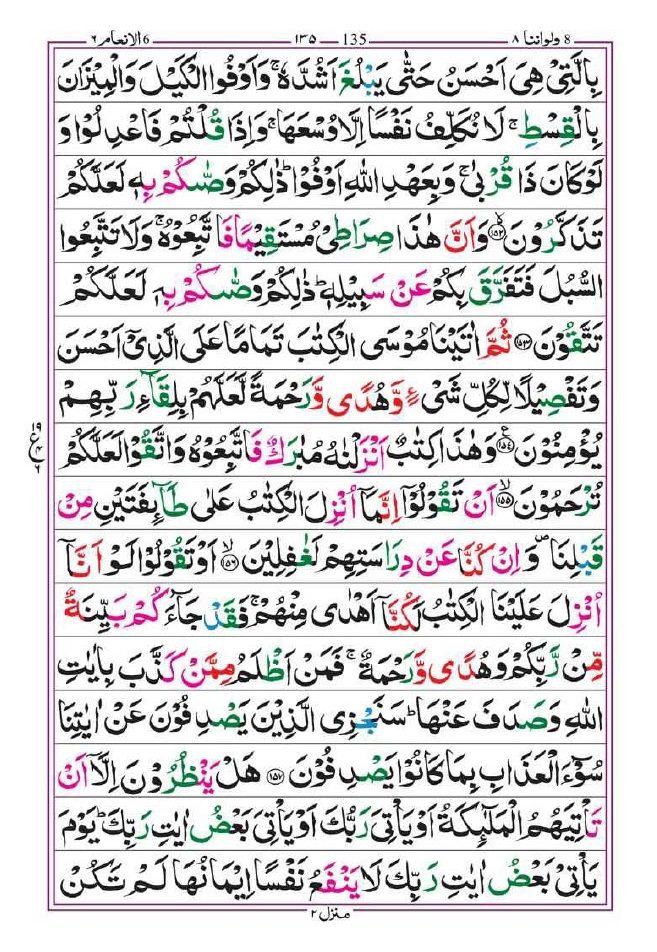 8 ولواننا ٨ — 135 — ١٣٥ — 6 الانعام ٦
بِالَّتِىْ هِىَ اَحْسَنُ حَتّٰى يَبْلُغَ اَشُدَّهٗ‌ ۚ وَاَوْفُوا الْكَيْلَ وَالْمِيْزَانَ
بِالْقِسْطِ‌ ۚ لَا نُكَلِّفُ نَفْسًا اِلَّا وُسْعَهَا‌ ۚ وَاِذَا قُلْتُمْ فَاعْدِلُوْا وَ
لَوْ كَانَ ذَا قُرْبٰى‌ ۚ وَبِعَهْدِ اللّٰهِ اَوْفُوْا‌ ؕ ذٰلِكُمْ وَصّٰٮكُمْ بِهٖ لَعَلَّكُمْ
تَذَكَّرُوْنَ ۙ‏﴿۱۵۲﴾ وَاَنَّ هٰذَا صِرَاطِىْ مُسْتَقِيْمًا فَاتَّبِعُوْهُ‌ ۚ وَلَا تَتَّبِعُوا
السُّبُلَ فَتَفَرَّقَ بِكُمْ عَنْ سَبِيْلِهٖ‌ ؕ ذٰلِكُمْ وَصّٰٮكُمْ بِهٖ لَعَلَّكُمْ
تَتَّقُوْنَ ‏﴿۱۵۳﴾ ثُمَّ اٰتَيْنَا مُوْسَى الْكِتٰبَ تَمَامًا عَلَى الَّذِىْۤ اَحْسَنَ
وَتَفْصِيْلًا لِّكُلِّ شَىْءٍ وَّهُدًى وَّرَحْمَةً لَّعَلَّهُمْ بِلِقَآءِ رَبِّهِمْ
يُؤْمِنُوْنَ ‏﴿۱۵۴﴾ ع وَهٰذَا كِتٰبٌ اَنْزَلْنٰهُ مُبٰرَكٌ فَاتَّبِعُوْهُ وَاتَّقُوْا لَعَلَّكُمْ
١٩ ع ٤ ٦
تُرْحَمُوْنَ ۙ‏﴿۱۵۵﴾ اَنْ تَقُوْلُوْۤا اِنَّمَاۤ اُنْزِلَ الْكِتٰبُ عَلٰى طَآٮِٕفَتَيْنِ مِنْ
قَبْلِنَا ۖ وَاِنْ كُنَّا عَنْ دِرَاسَتِهِمْ لَغٰفِلِيْنَ ۙ‏﴿۱۵۶﴾ اَوْ تَقُوْلُوْا لَوْ اَنَّاۤ
اُنْزِلَ عَلَيْنَا الْكِتٰبُ لَكُنَّاۤ اَهْدٰى مِنْهُمْ‌ ۚ فَقَدْ جَآءَكُمْ بَيِّنَةٌ
مِّنْ رَّبِّكُمْ وَهُدًى وَّرَحْمَةٌ‌  ۚ فَمَنْ اَظْلَمُ مِمَّنْ كَذَّبَ بِاٰيٰتِ
اللّٰهِ وَصَدَفَ عَنْهَا‌ ؕ سَنَجْزِى الَّذِيْنَ يَصْدِفُوْنَ عَنْ اٰيٰتِنَا
سُوْٓءَ الْعَذَابِ بِمَا كَانُوْا يَصْدِفُوْنَ ‏﴿۱۵۷﴾ هَلْ يَنْظُرُوْنَ اِلَّاۤ اَنْ
تَاْتِيَهُمُ الْمَلٰٓٮِٕكَةُ اَوْ يَاْتِىَ رَبُّكَ اَوْ يَاْتِىَ بَعْضُ اٰيٰتِ رَبِّكَ‌ ؕ يَوْمَ
يَاْتِىْ بَعْضُ اٰيٰتِ رَبِّكَ لَا يَنْفَعُ نَفْسًا اِيْمَانُهَا لَمْ تَكُنْ
منزل ٢